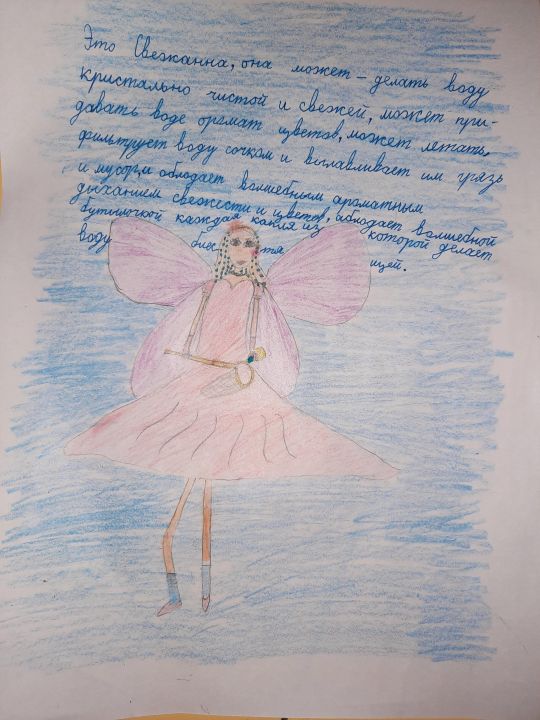 Это Свежанна, она может - делать воду
кристально чистой и свежей, может при-
давать воде аромат цветов, может летать,
фильтрует воду сочком и вылавливает им грязь
и мусор, и обладает волшебным ароматным
дыханием свежести и цветов, обладает волшебной
бутилочкой каждая капля из которой делает
воду блестящей.